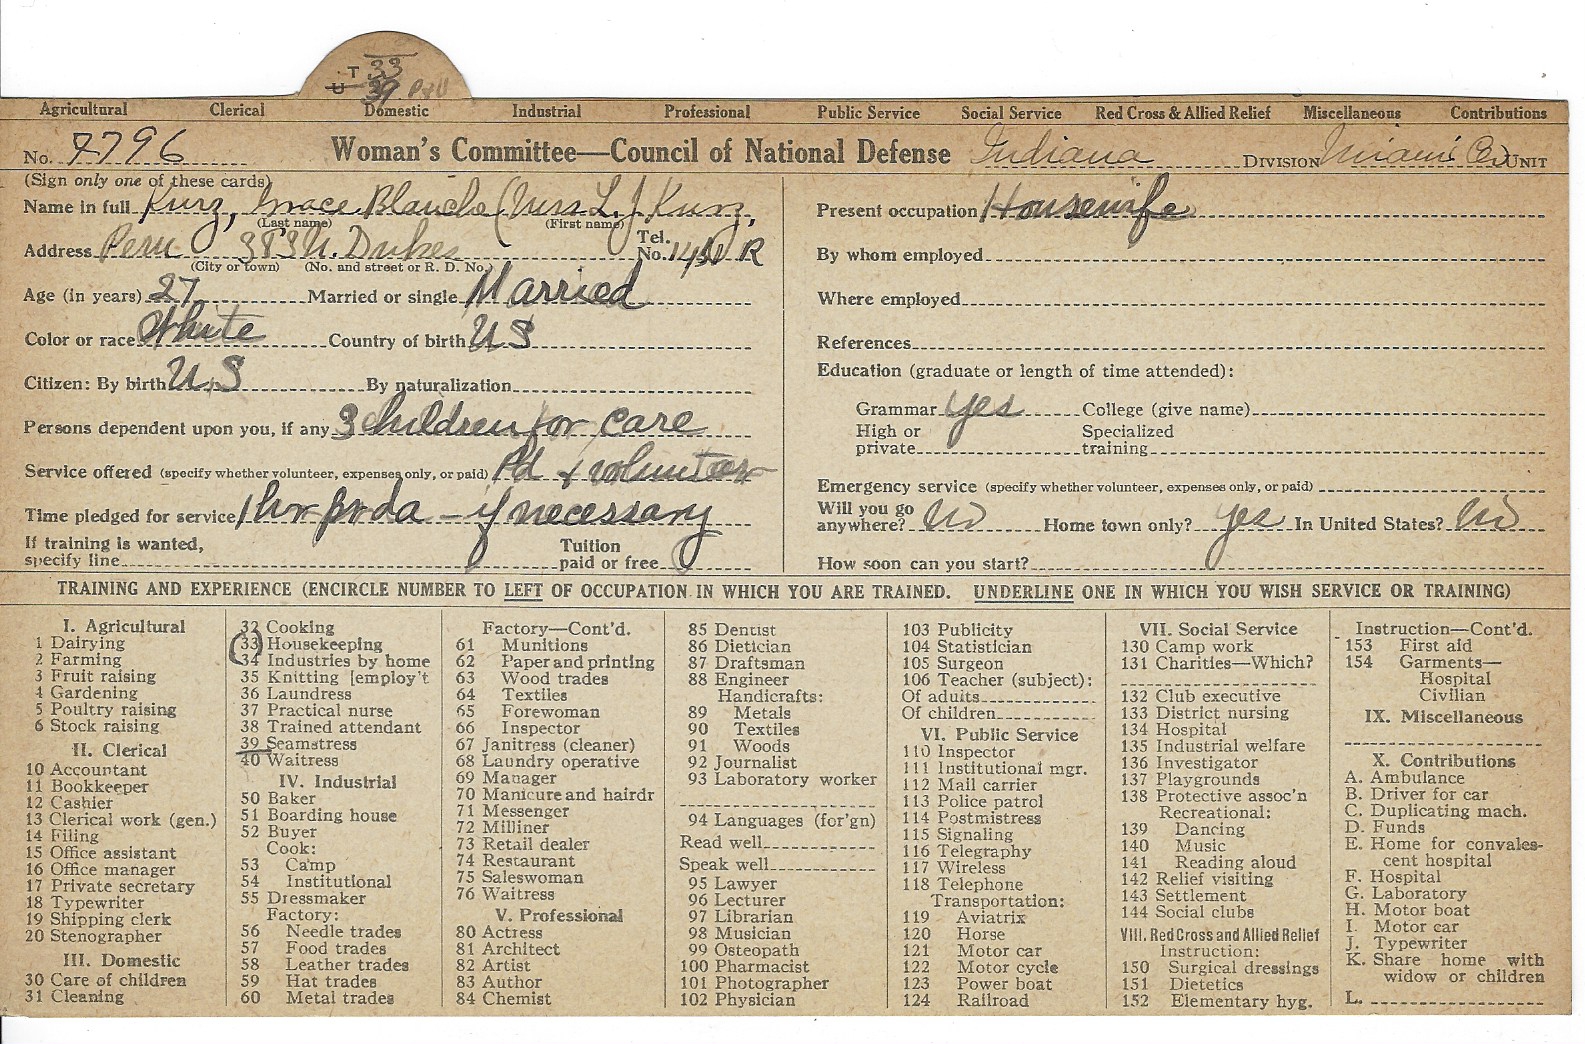 T 33
U 39 P&V
Agricultural Clerical Domestic Industrial Professional Public Service Social Service Red Cross & Allied Relief Miscellaneous Contributions
No. 7796 Woman's Committee—Council of National Defense Indiana DIVISION Miami Co. UNIT
(Sign only one of these cards)
Name in full Kurz, Grace Blanche (Mrs L. J. Kurz,
(Last name) (First name)
Address Peru 383 N. Dukes Tel. No. R
(City or town) (No. and street or R. D. No.)
Age (in years) 27 Married or single Married
Color or race White Country of birth U S
Citizen: By birth U.S By naturalization
Persons dependent upon you, if any 3 children for care
Service offered (specify whether volunteer, expenses only, or paid) Pd & volunteer
Time pledged for service 1 hr pr da – if necessary
If training is wanted, specify line Tuition paid or free
Present occupation Housewife
By whom employed
Where employed
References
Education (graduate or length of time attended):
Grammar yes College (give name)
High or private Specialized training
Emergency service (specify whether volunteer, expenses only, or paid)
Will you go anywhere? No Home town only? yes In United States? No
How soon can you start?
TRAINING AND EXPERIENCE (ENCIRCLE NUMBER TO LEFT OF OCCUPATION IN WHICH YOU ARE TRAINED. UNDERLINE ONE IN WHICH YOU WISH SERVICE OR TRAINING)
I. Agricultural
1 Dairying
2 Farming
3 Fruit raising
4 Gardening
5 Poultry raising
6 Stock raising
II. Clerical
10 Accountant
11 Bookkeeper
12 Cashier
13 Clerical work (gen.)
14 Filing
15 Office assistant
16 Office manager
17 Private secretary
18 Typewriter
19 Shipping clerk
20 Stenographer
III. Domestic
30 Care of children
31 Cleaning
32 Cooking
33 Housekeeping
34 Industries by home
35 Knitting [employ't
36 Laundress
37 Practical nurse
38 Trained attendant
39 Seamstress
40 Waitress
IV. Industrial
50 Baker
51 Boarding house
52 Buyer
Cook:
53 Camp
54 Institutional
55 Dressmaker
Factory:
56 Needle trades
57 Food trades
58 Leather trades
59 Hat trades
60 Metal trades
Factory—Cont'd.
61 Munitions
62 Paper and printing
63 Wood trades
64 Textiles
65 Forewoman
66 Inspector
67 Janitress (cleaner)
68 Laundry operative
69 Manager
70 Manicure and hairdr
71 Messenger
72 Milliner
73 Retail dealer
74 Restaurant
75 Saleswoman
76 Waitress
V. Professional
80 Actress
81 Architect
82 Artist
83 Author
84 Chemist
85 Dentist
86 Dietician
87 Draftsman
88 Engineer
Handicrafts:
89 Metals
90 Textiles
91 Woods
92 Journalist
93 Laboratory worker
94 Languages (for'gn)
Read well
Speak well
95 Lawyer
96 Lecturer
97 Librarian
98 Musician
99 Osteopath
100 Pharmacist
101 Photographer
102 Physician
103 Publicity
104 Statistician
105 Surgeon
106 Teacher (subject):
Of adults
Of children
VI. Public Service
110 Inspector
111 Institutional mgr.
112 Mail carrier
113 Police patrol
114 Postmistress
115 Signaling
116 Telegraphy
117 Wireless
118 Telephone
Transportation:
119 Aviatrix
120 Horse
121 Motor car
122 Motor cycle
123 Power boat
124 Railroad
VII. Social Service
130 Camp work
131 Charities—Which?
132 Club executive
133 District nursing
134 Hospital
135 Industrial welfare
136 Investigator
137 Playgrounds
138 Protective assoc'n
Recreational:
139 Dancing
140 Music
141 Reading aloud
142 Relief visiting
143 Settlement
144 Social clubs
VIII. Red Cross and Allied Relief
Instruction:
150 Surgical dressings
151 Dietetics
152 Elementary hyg.
Instruction—Cont'd.
153 First aid
154 Garments—
Hospital
Civilian
IX. Miscellaneous
X. Contributions
A. Ambulance
B. Driver for car
C. Duplicating mach.
D. Funds
E. Home for convales-
cent hospital
F. Hospital
G. Laboratory
H. Motor boat
I. Motor car
J. Typewriter
K. Share home with
widow or children
L.